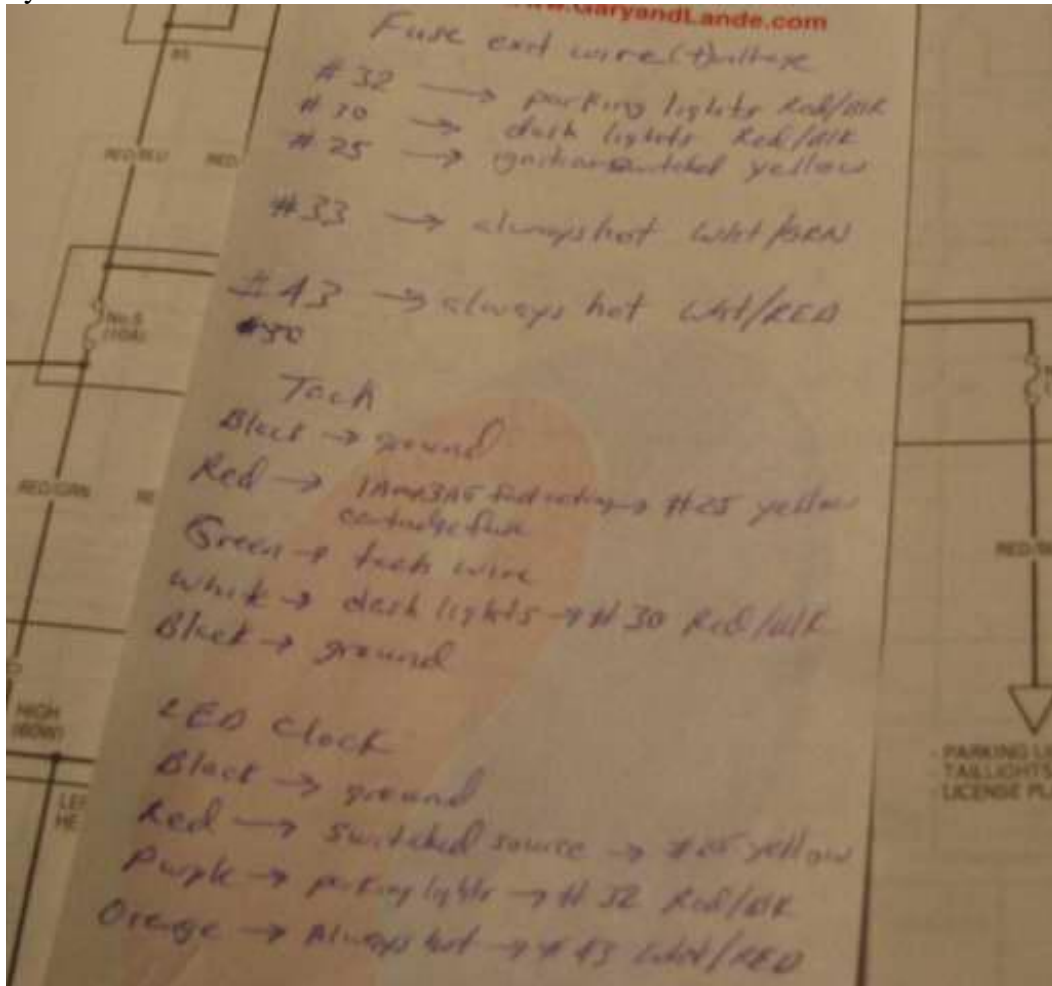 www.GaryandLande.com
Fuse exit wire (+) voltage
#32 → parking lights Red/BlK
#30 → dash lights Red/BlK
#25 → ignition switched yellow
#33 → always hot Wht/GRN
#43 → always hot Wht/RED
#30
Tach
Black → ground
Red → 1Amp 3AG fast acting → #25 yellow
cartridge fuse
Green → tach wire
White → dash lights → #30 Red/BlK
Black → ground
LED Clock
Black → ground
Red → switched source → #25 yellow
Purple → parking lights → #32 Red/BlK
Orange → Always hot → #43 Wht/RED
RED/BLU
RED
No.5
(10A)
RED/GRN
RE
HIGH
(60W)
LEF
HE
- PARKING LI
- TAILLIGHTS
- LICENSE PL